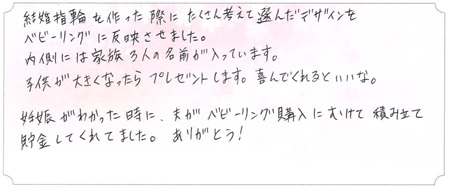 結婚指輪を作った際にたくさん考えて選んだデザインを
ベビーリングに反映させました。
内側には家族3人の名前が入っています。
子供が大きくなったらプレゼントします。喜んでくれるといいな。
妊娠がわかった時に、夫がベビーリング購入にむけて積み立て
貯金してくれてました。ありがとう!